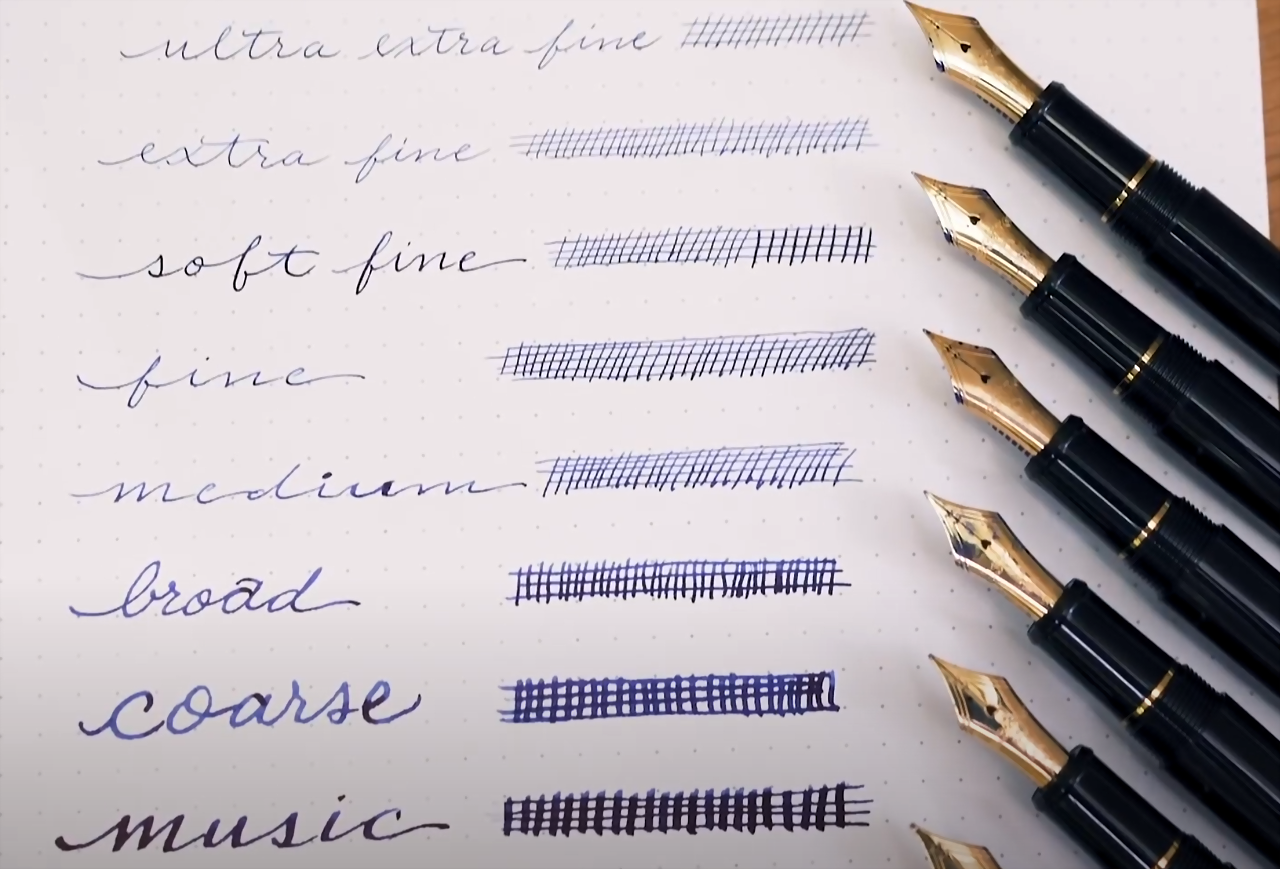 ultra extra fine
extra fine
soft fine
fine
medium
broad
coarse
music